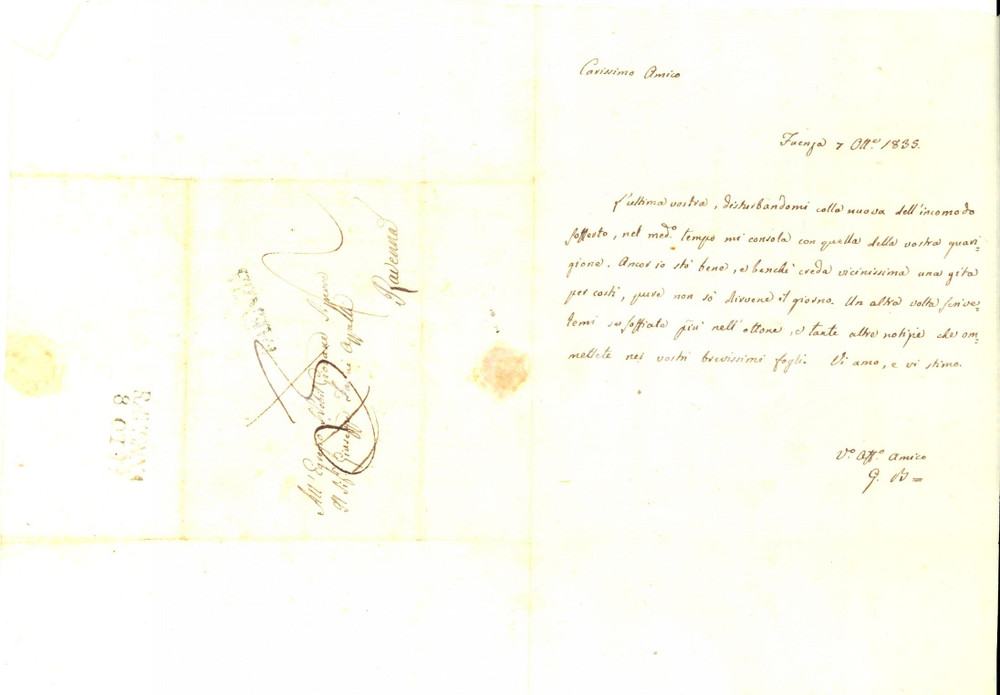 Carissimo Amico
Faenza 7 Ott.e 1835.
L'ultima vostra, disturbandomi colla nuova dell'incomodo
sofferto, nel med.o tempo mi consola con quella della vostra guari-
gione. Ancor io stò bene, e benchè creda vicinissima una gita
per costì, pure non sò dirvene il giorno. Un altra volta scrive-
temi se soffiate più nell'ottone, e tante altre notizie che om-
mettete nei vostri brevissimi fogli. Vi amo, e vi stimo.
V.o Aff.o Amico
G. B=
All' Egregio Nobil Giovane Signore
Il Sig. Giuseppe
Ravenna
FAENZA
RAVENNA
8 OT